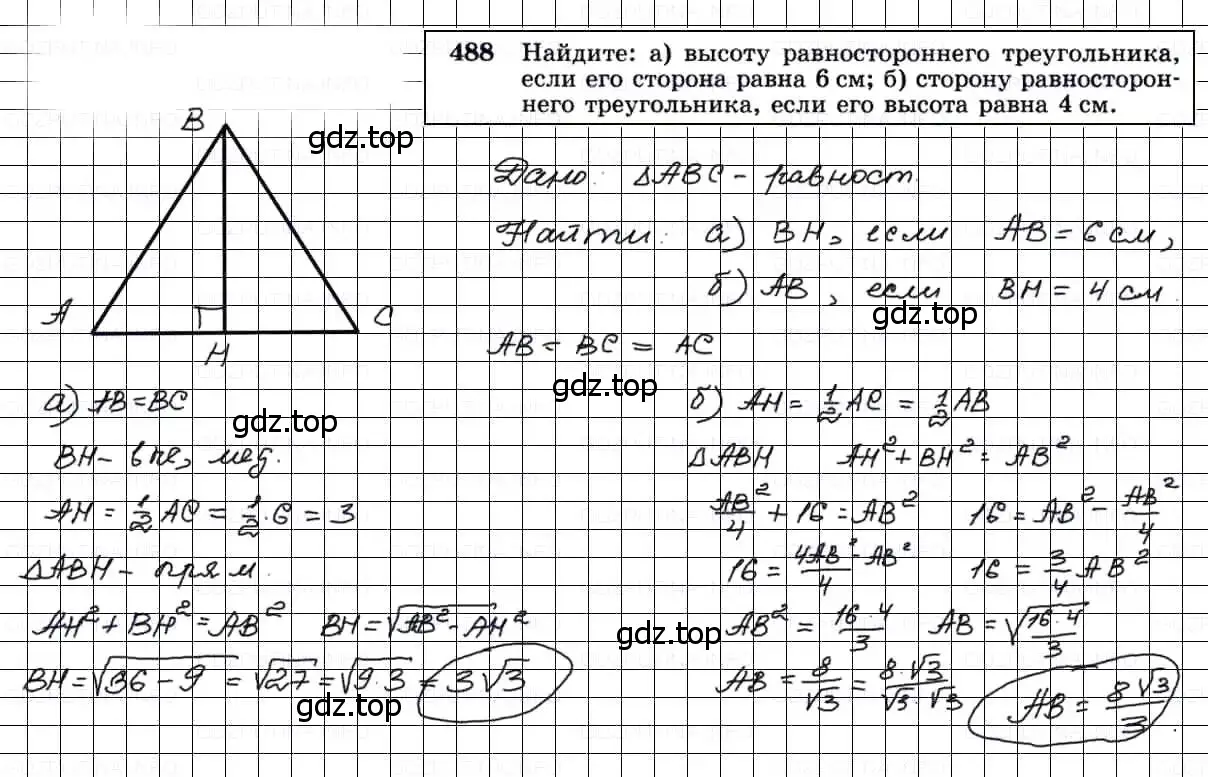 488 Найдите: а) высоту равностороннего треугольника,
если его сторона равна 6 см; б) сторону равносторон-
него треугольника, если его высота равна 4 см.
B
gdz.top
Дано: △ABC - равност.
Найти: а) BH, если AB = 6 см,
б) AB, если BH = 4 см.
gdz.top
A
C
H
AB = BC = AC
gdz.top
а) AB = BC
gdz.top
BH - выс, мед.
AH = 1/2 AC = 1/2 · 6 = 3
△ABH - прям.
AH² + BH² = AB² BH = √(AB² - AH²)
BH = √(36 - 9) = √27 = √(9·3) = 3√3
gdz.top
б) AH = 1/2 AC = 1/2 AB
△ABH AH² + BH² = AB²
AB²/4 + 16 = AB² 16 = AB² - AB²/4
16 = (4AB² - AB²)/4 16 = 3/4 AB²
gdz.top
AB² = (16·4)/3 AB = √((16·4)/3)
AB = 8/√3 = (8·√3)/(√3·√3)
AB = (8√3)/3
gdz.top